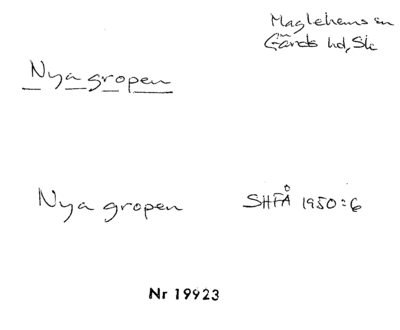 Maglehems sn
Gärds hd, Sk
Nya gropen
Nya gropen SHFÅ 1950:6
Nr 19923